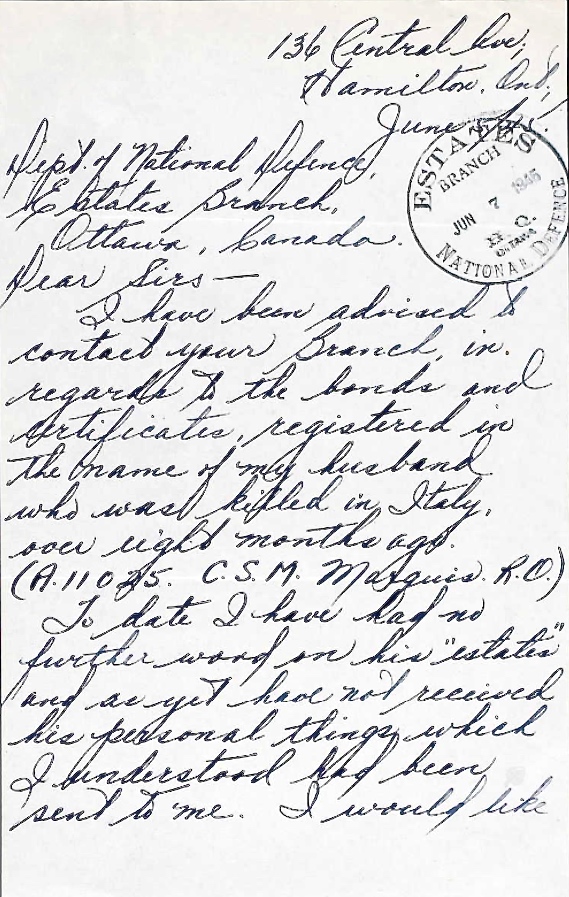 136 Central Ave,
Hamilton, Ont,
June 5/45.
ESTATES
BRANCH
JUN 7 1945
H.Q.
OTTAWA
NATIONAL DEFENCE
Dept. of National Defence,
Estates Branch,
Ottawa, Canada.
Dear Sirs —
I have been advised to
contact your Branch, in
regards to the bonds and
certificates, registered in
the name of my husband
who was killed in Italy,
over eight months ago.
(A.11025. C.S.M. Marquis. R.O.)
To date I have had no
further word on his "estates"
and as yet have not received
his personal things, which
I understood had been
sent to me. I would like